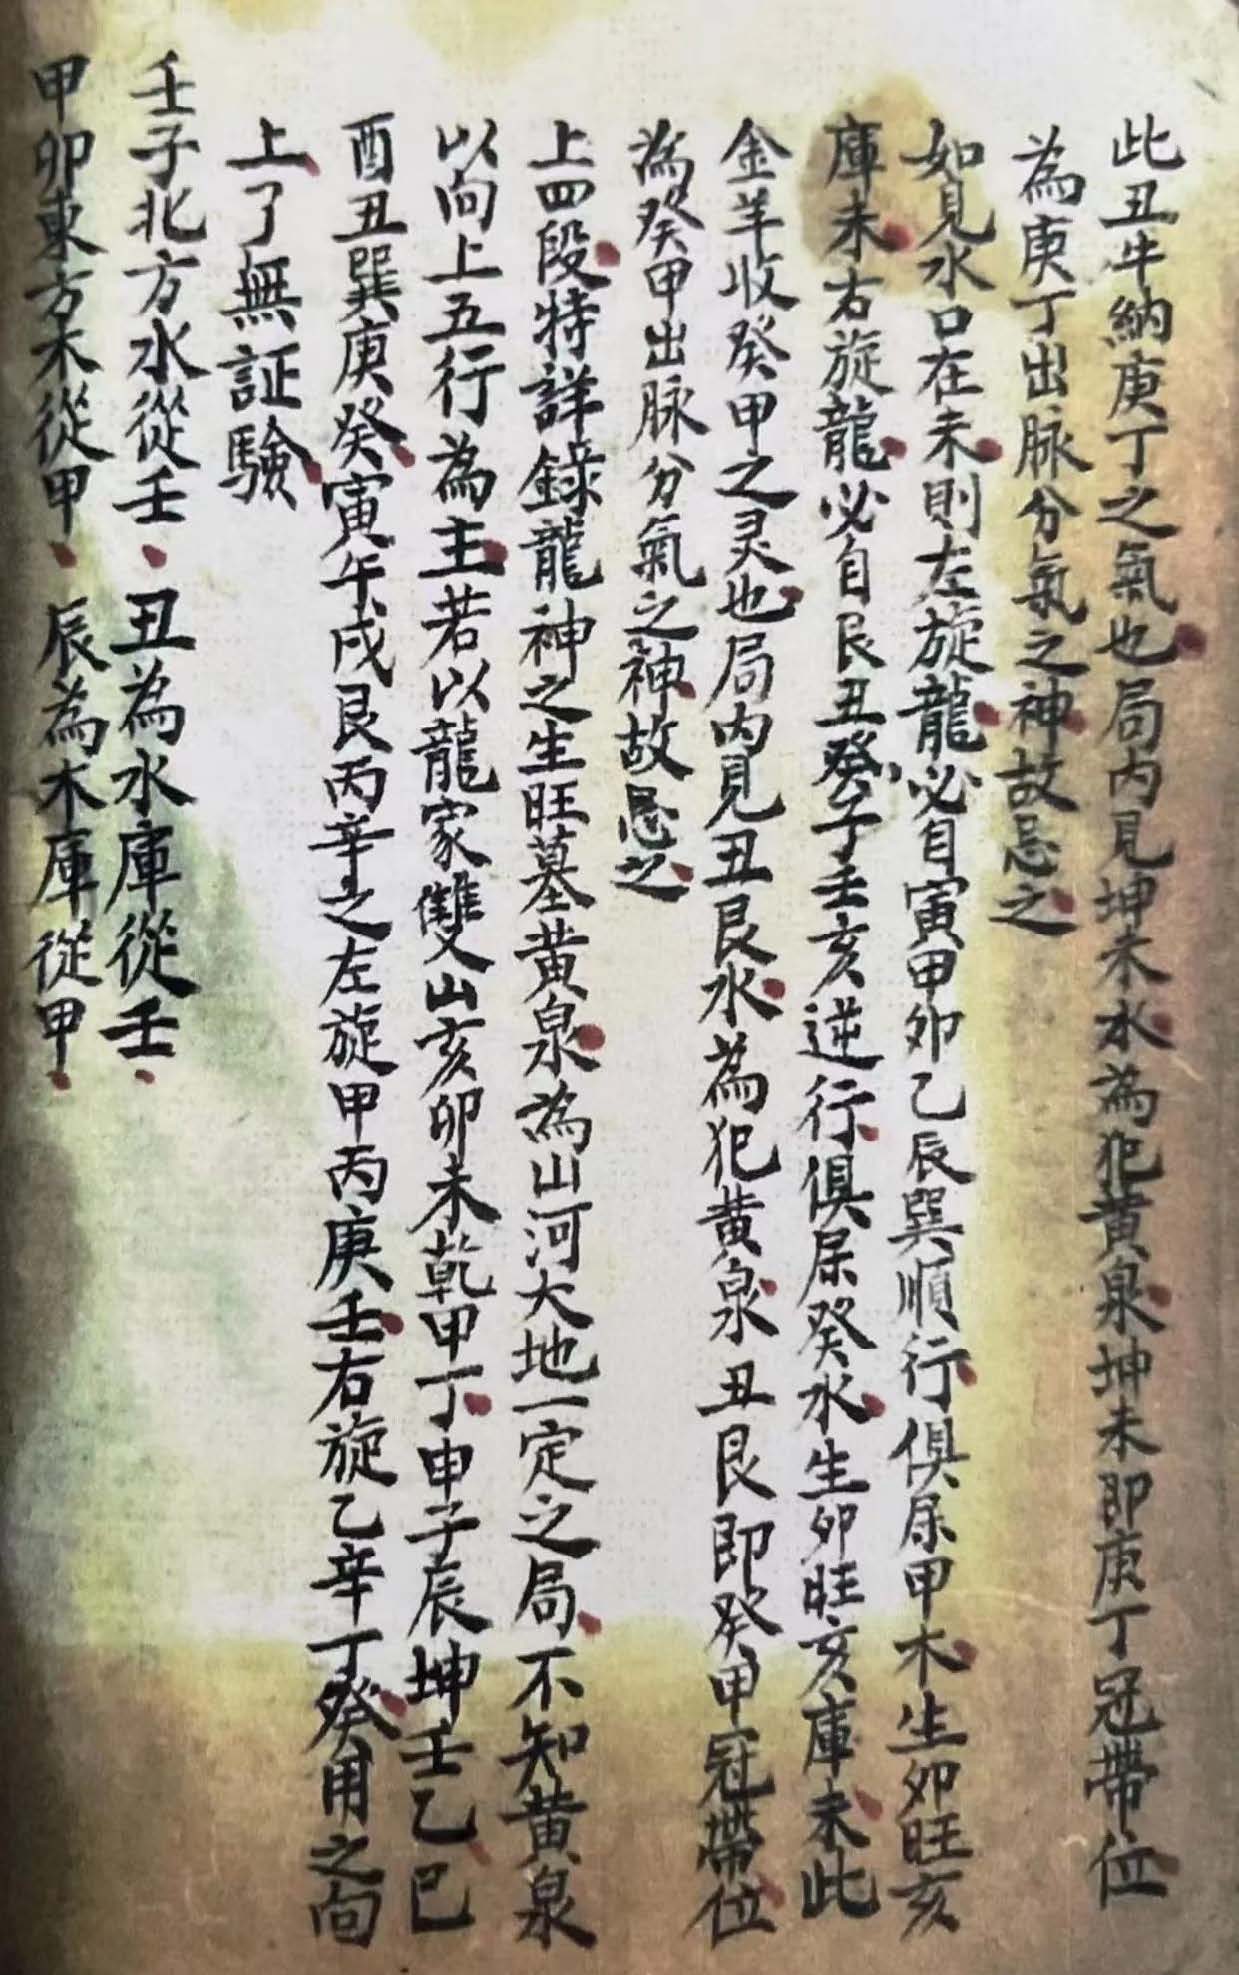 此丑牛納庚丁之氣也局内見坤未水為犯黄泉坤未即庚丁冠帶位
為庚丁出脉分氣之神故忌之
如見水口在未則左旋龍必自寅甲卯乙辰巽順行俱属甲木生卯旺亥
庫未右旋龍必自艮丑癸子壬亥逆行俱属癸水生卯旺亥庫未此
金羊收癸甲之灵也局内見丑艮水為犯黄泉丑艮即癸甲冠帶位
為癸甲出脉分氣之神故忌之
上四段特詳錄龍神之生旺墓黄泉為山河大地一定之局不知黄泉
以向上五行為主若以龍家雙山亥卯未乾甲丁申子辰坤壬乙巳
酉丑巽庚癸寅午戌艮丙辛之左旋甲丙庚壬右旋乙辛丁癸用之向
上了無証驗
壬子北方水從壬、丑為水庫從壬、
甲卯東方木從甲、辰為木庫從甲、